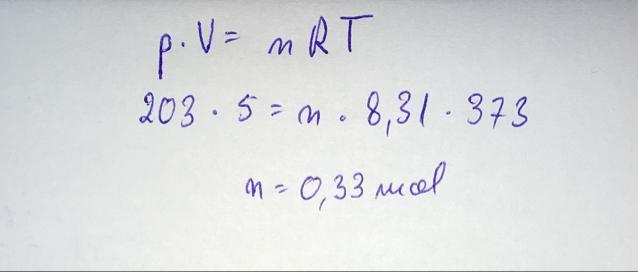 p·V= nRT
203 · 5 = n · 8,31 · 373
n = 0,33 mol